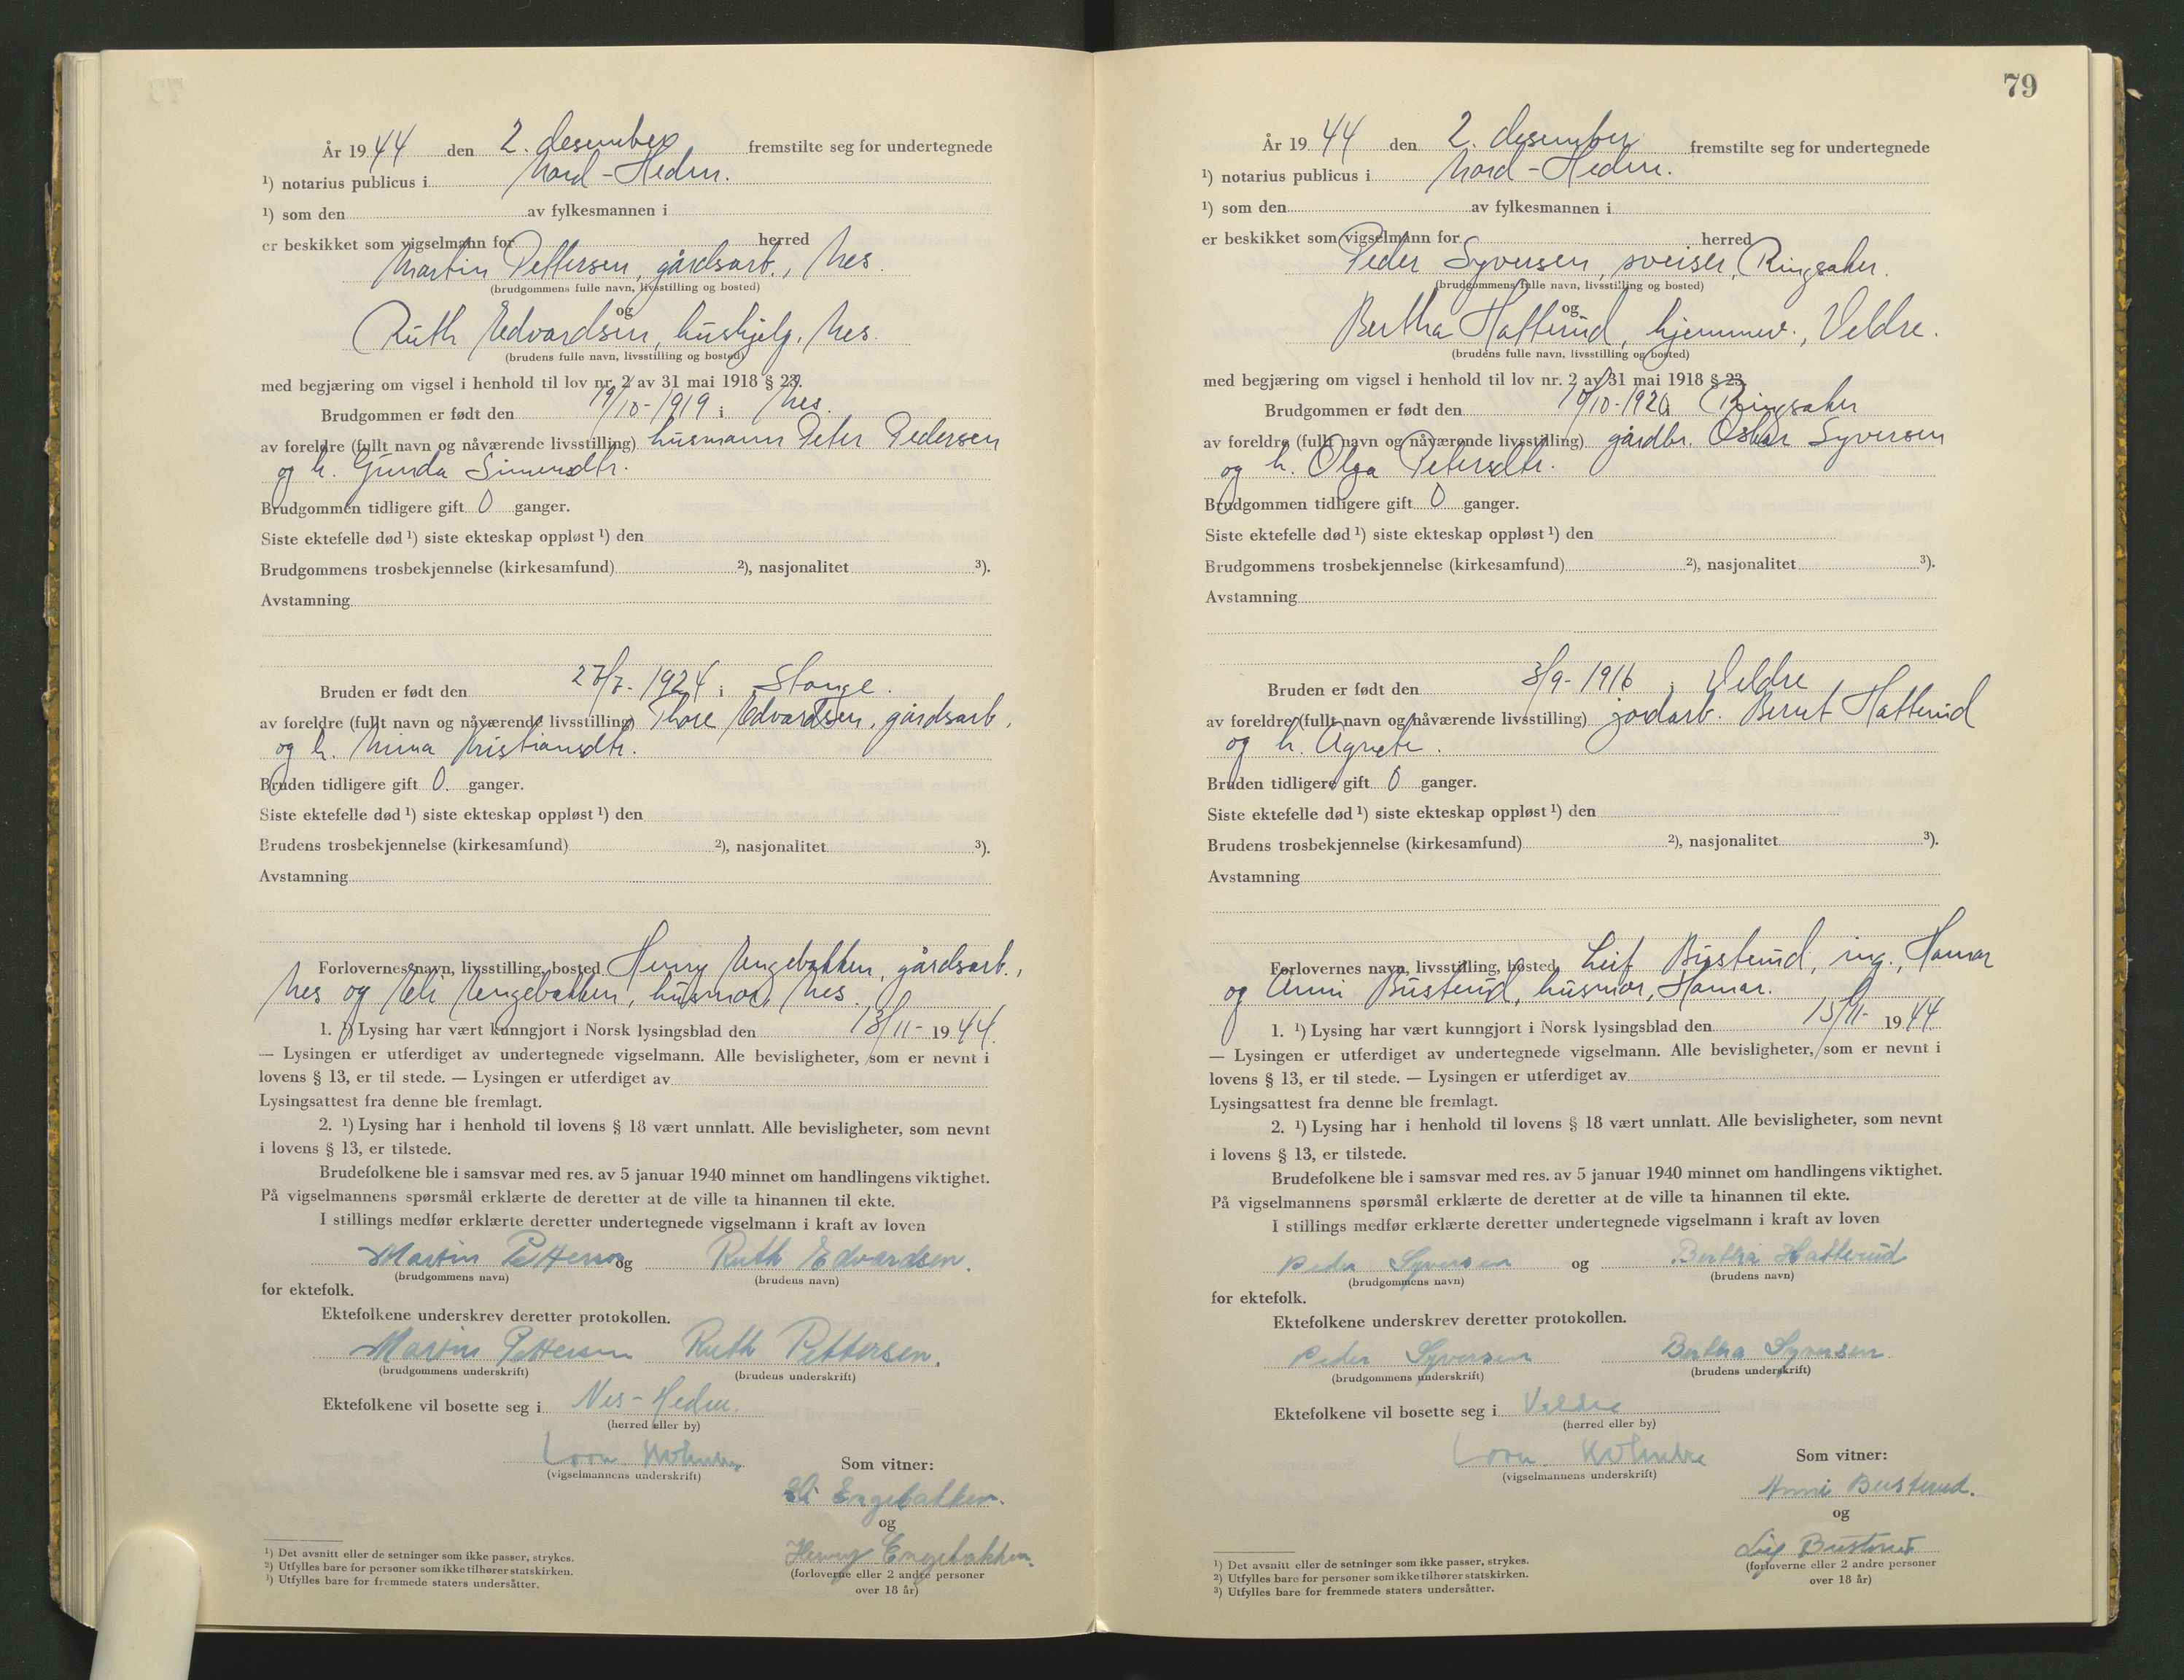 År 19 44 den 2. desember fremstilte seg for undertegnede
¹) notarius publicus i Nord-Hedm.
¹) som den av fylkesmannen i
er beskikket som vigselmann for herred
Martin Pettersen, gårdsarb., Nes.
(brudgommens fulle navn, livsstilling og bosted)
og
Ruth Edvardsen, hushjelp, Nes.
(brudens fulle navn, livsstilling og bosted)
med begjæring om vigsel i henhold til lov nr. 2 av 31 mai 1918 § 23.
Brudgommen er født den 19/10-1919 i Nes.
av foreldre (fullt navn og nåværende livsstilling) husmann Peter Pedersen
og h. Gunda Simensdtr.
Brudgommen tidligere gift 0 ganger.
Siste ektefelle død ¹) siste ekteskap oppløst ¹) den
Brudgommens trosbekjennelse (kirkesamfund) ²), nasjonalitet ³).
Avstamning
Bruden er født den 27/7-1924 i Stange.
av foreldre (fullt navn og nåværende livsstilling) Thore Edvardsen, gårdsarb,
og h. Mina Kristiansdtr.
Bruden tidligere gift 0. ganger.
Siste ektefelle død ¹) siste ekteskap oppløst ¹) den
Brudens trosbekjennelse (kirkesamfund) ²), nasjonalitet ³).
Avstamning
Forlovernes navn, livsstilling, bosted Henry Engebakken, gårdsarb.,
Nes og Eli Engebakken, husmor, Nes.
1. ¹) Lysing har vært kunngjort i Norsk lysingsblad den 13/11- 19 44.
— Lysingen er utferdiget av undertegnede vigselmann. Alle bevisligheter, som er nevnt i
lovens § 13, er til stede. — Lysingen er utferdiget av
Lysingsattest fra denne ble fremlagt.
2. ¹) Lysing har i henhold til lovens § 18 vært unnlatt. Alle bevisligheter, som nevnt
i lovens § 13, er tilstede.
Brudefolkene ble i samsvar med res. av 5 januar 1940 minnet om handlingens viktighet.
På vigselmannens spørsmål erklærte de deretter at de ville ta hinannen til ekte.
I stillings medfør erklærte deretter undertegnede vigselmann i kraft av loven
Martin Pettersen og Ruth Edvardsen.
(brudgommens navn) (brudens navn)
for ektefolk.
Ektefolkene underskrev deretter protokollen.
Martin Pettersen Ruth Pettersen.
(brudgommens underskrift) (brudens underskrift)
Ektefolkene vil bosette seg i Nes-Hedm.
(herred eller by)
(vigselmannens underskrift)
Som vitner:
Eli Engebakken.
og
Henry Engebakken.
(forloverne eller 2 andre personer
over 18 år)
¹) Det avsnitt eller de setninger som ikke passer, strykes.
²) Utfylles bare for personer som ikke tilhører statskirken.
³) Utfylles bare for fremmede staters undersåtter.
79
År 19 44 den 2. desember fremstilte seg for undertegnede
¹) notarius publicus i Nord-Hedm.
¹) som den av fylkesmannen i
er beskikket som vigselmann for herred
Peder Syversen, sveiser, Ringsaker.
(brudgommens fulle navn, livsstilling og bosted)
og
Bertha Hatterud, hjemmev., Veldre.
(brudens fulle navn, livsstilling og bosted)
med begjæring om vigsel i henhold til lov nr. 2 av 31 mai 1918 § 23.
Brudgommen er født den /10-1920 i Ringsaker
av foreldre (fullt navn og nåværende livsstilling) gårdbr. Oskar Syversen
og h. Olga Petersdtr.
Brudgommen tidligere gift 0 ganger.
Siste ektefelle død ¹) siste ekteskap oppløst ¹) den
Brudgommens trosbekjennelse (kirkesamfund) ²), nasjonalitet ³).
Avstamning
Bruden er født den 3/9-1916 i Veldre
av foreldre (fullt navn og nåværende livsstilling) jordarb. Bernt Hatterud
og h. Agnete.
Bruden tidligere gift 0 ganger.
Siste ektefelle død ¹) siste ekteskap oppløst ¹) den
Brudens trosbekjennelse (kirkesamfund) ²), nasjonalitet ³).
Avstamning
Forlovernes navn, livsstilling, bosted Leif Busterud, ing., Hamar
og Anni Busterud, husmor, Hamar.
1. ¹) Lysing har vært kunngjort i Norsk lysingsblad den 15/11- 19 44
— Lysingen er utferdiget av undertegnede vigselmann. Alle bevisligheter, som er nevnt i
lovens § 13, er til stede. — Lysingen er utferdiget av
Lysingsattest fra denne ble fremlagt.
2. ¹) Lysing har i henhold til lovens § 18 vært unnlatt. Alle bevisligheter, som nevnt
i lovens § 13, er tilstede.
Brudefolkene ble i samsvar med res. av 5 januar 1940 minnet om handlingens viktighet.
På vigselmannens spørsmål erklærte de deretter at de ville ta hinannen til ekte.
I stillings medfør erklærte deretter undertegnede vigselmann i kraft av loven
Peder Syversen og Bertha Hatterud
(brudgommens navn) (brudens navn)
for ektefolk.
Ektefolkene underskrev deretter protokollen.
Peder Syversen Bertha Syversen
(brudgommens underskrift) (brudens underskrift)
Ektefolkene vil bosette seg i Veldre
(herred eller by)
(vigselmannens underskrift)
Som vitner:
Anni Busterud.
og
Leif Busterud
(forloverne eller 2 andre personer
over 18 år)
¹) Det avsnitt eller de setninger som ikke passer, strykes.
²) Utfylles bare for personer som ikke tilhører statskirken.
³) Utfylles bare for fremmede staters undersåtter.